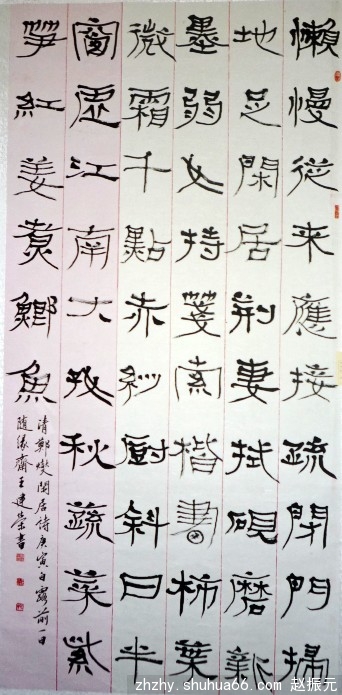 懶慢從來應接疏閉門掃
地足閑居荊妻拭硯磨新
墨弱女持箋索楷書柿葉
微霜千點赤紗廚斜日半
窗虛江南大好秋蔬菜紫
筍紅姜煮鯽魚
清鄭燮閑居詩庚寅白露前一日
隨緣齋王建榮書
zhzhy.shuhua66.com 赵振元